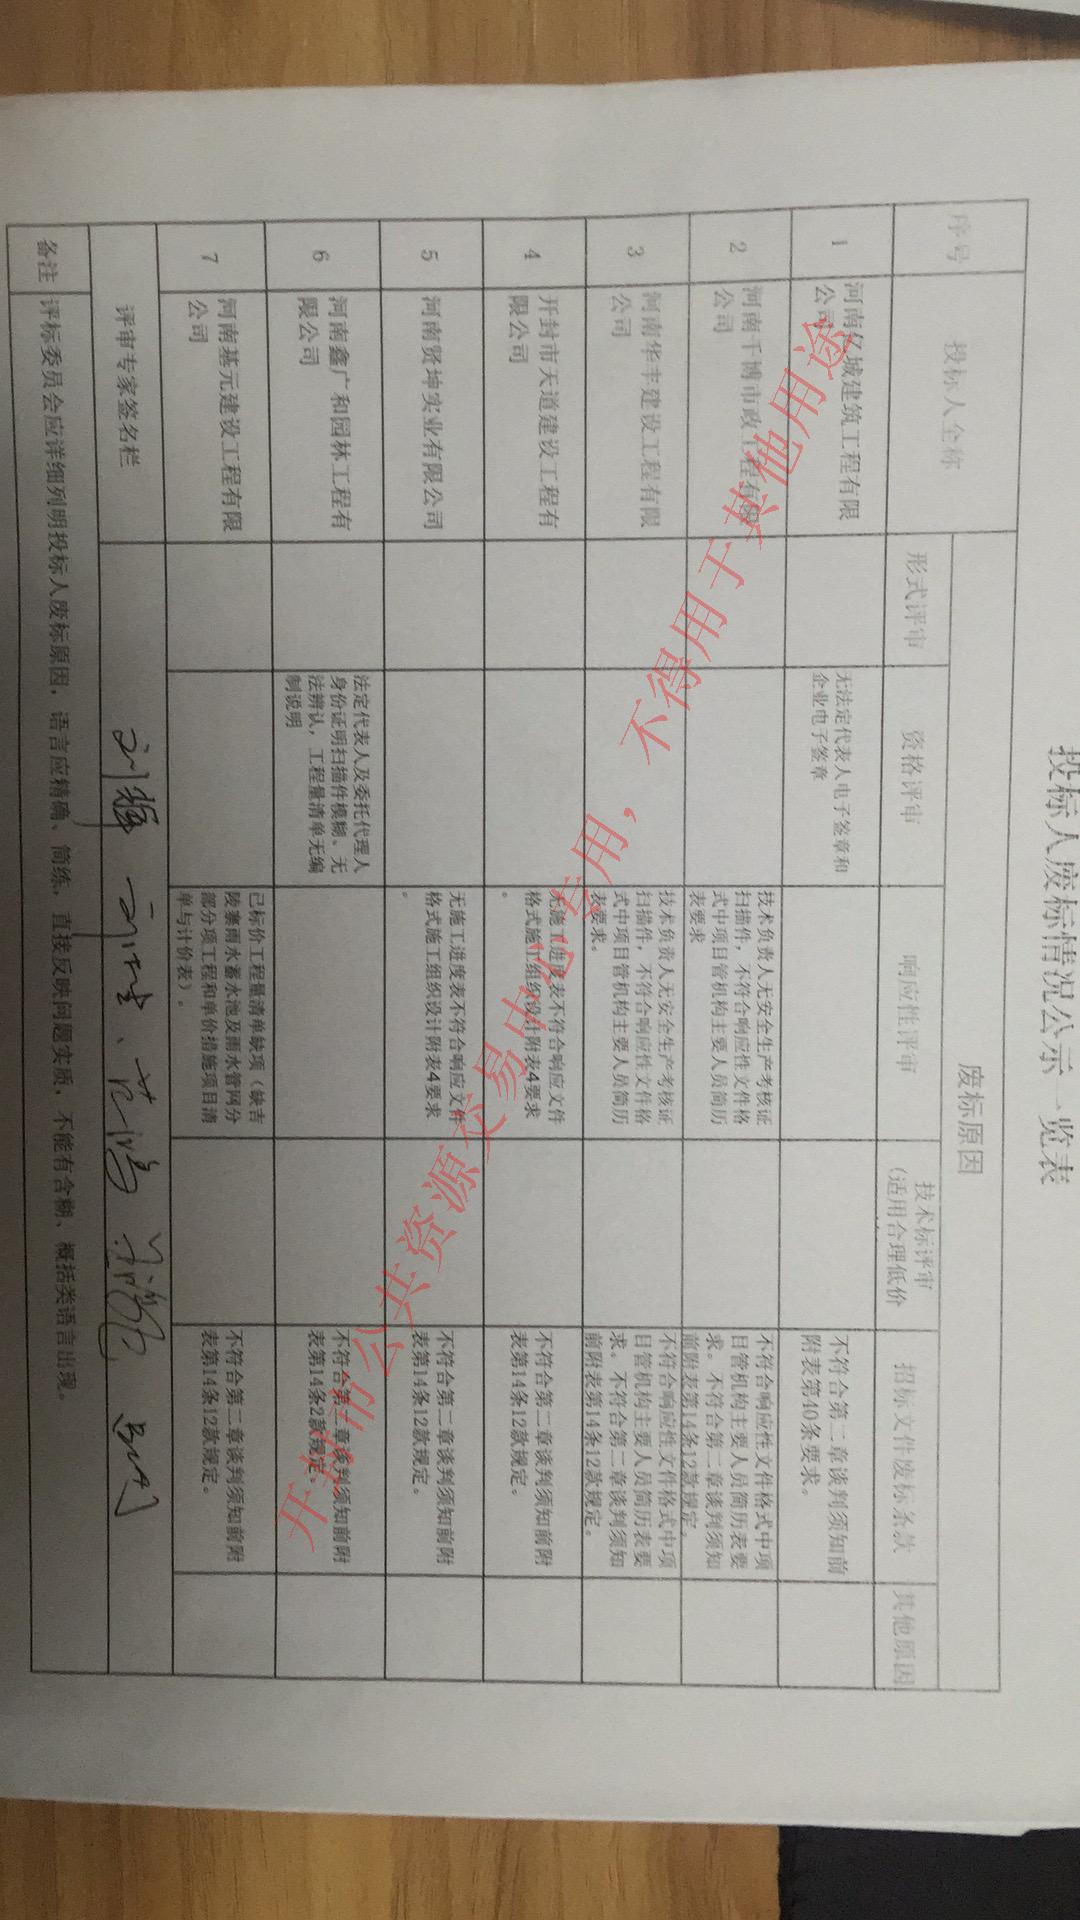 投标人废标情况公示一览表
序号
投标人全称
废标原因
形式评审
资格评审
响应性评审
技术标评审
(适用合理低价
招标文件废标条款
其他原因
1
河南亿城建筑工程有限
公司
无法定代表人电子签章和
企业电子签章
不符合第二章谈判须知前
附表第40条要求。
2
河南千博市政工程有限
公司
技术负责人无安全生产考核证
扫描件,不符合响应性文件格
式中项目管机构主要人员简历
表要求
不符合响应性文件格式中项
目管机构主要人员简历表要
求。不符合第二章谈判须知
前附表第14条12款规定。
3
河南华丰建设工程有限
公司
技术负责人无安全生产考核证
扫描件,不符合响应性文件格
式中项目管机构主要人员简历
表要求。
不符合响应性文件格式中项
目管机构主要人员简历表要
求。不符合第二章谈判须知
前附表第14条12款规定。
4
开封市天道建设工程有
限公司
无施工进度表不符合响应文件
格式施工组织设计附表4要求
。
不符合第二章谈判须知前附
表第14条12款规定。
5
河南贤坤实业有限公司
无施工进度表不符合响应文件
格式施工组织设计附表4要求
。
不符合第二章谈判须知前附
表第14条12款规定。
6
河南鑫广和园林工程有
限公司
法定代表人及委托代理人
身份证明扫描件模糊、无
法辨认,工程量清单无编
制说明
不符合第二章谈判须知前附
表第14条2款规定。
7
河南基元建设工程有限
公司
己标价工程量清单缺项(缺吉
陵寨雨水蓄水池及雨水管网分
部分项工程和单价措施项目清
单与计价表)。
不符合第二章谈判须知前附
表第14条12款规定。
评审专家签名栏
备注
评标委员会应详细列明投标人废标原因,语言应精确、简练,直接反映问题实质,不能有含糊、概括类语言出现。
开封市公共资源交易中心专用,不得用于其他用途